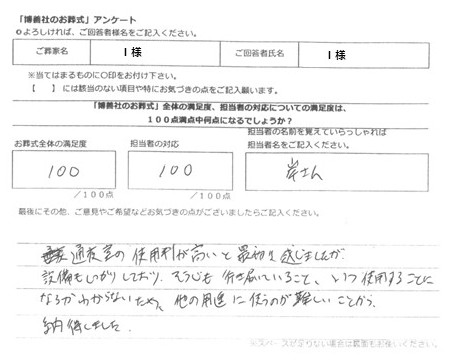 「博善社のお葬式」アンケート
○よろしければ、ご回答者様名をご記入ください。
ご葬家名 I 様 ご回答者氏名 I 様
※当てはまるものに○印をお付け下さい。
【 】には該当のない項目や特にお気づきの点をご記入願います。
「博善社のお葬式」全体の満足度、担当者の対応についての満足度は、
100点満点中何点になるでしょうか？
担当者の名前を覚えていらっしゃれば
お葬式全体の満足度 担当者の対応 担当者名をご記入ください。
100 100 岸さん
/100点 /100点
最後にその他、ご意見やご希望などお気づきの点がございましたらご記入ください。
通夜室の使用料が高いと最初は感じましたが
設備もしっかりしており、そうじも行き届いていること、いつ使用することに
なるかわからないため、他の用途に使うのが難しいことから
納得しました。
※スペースが足りない場合は裏面もお使いください。